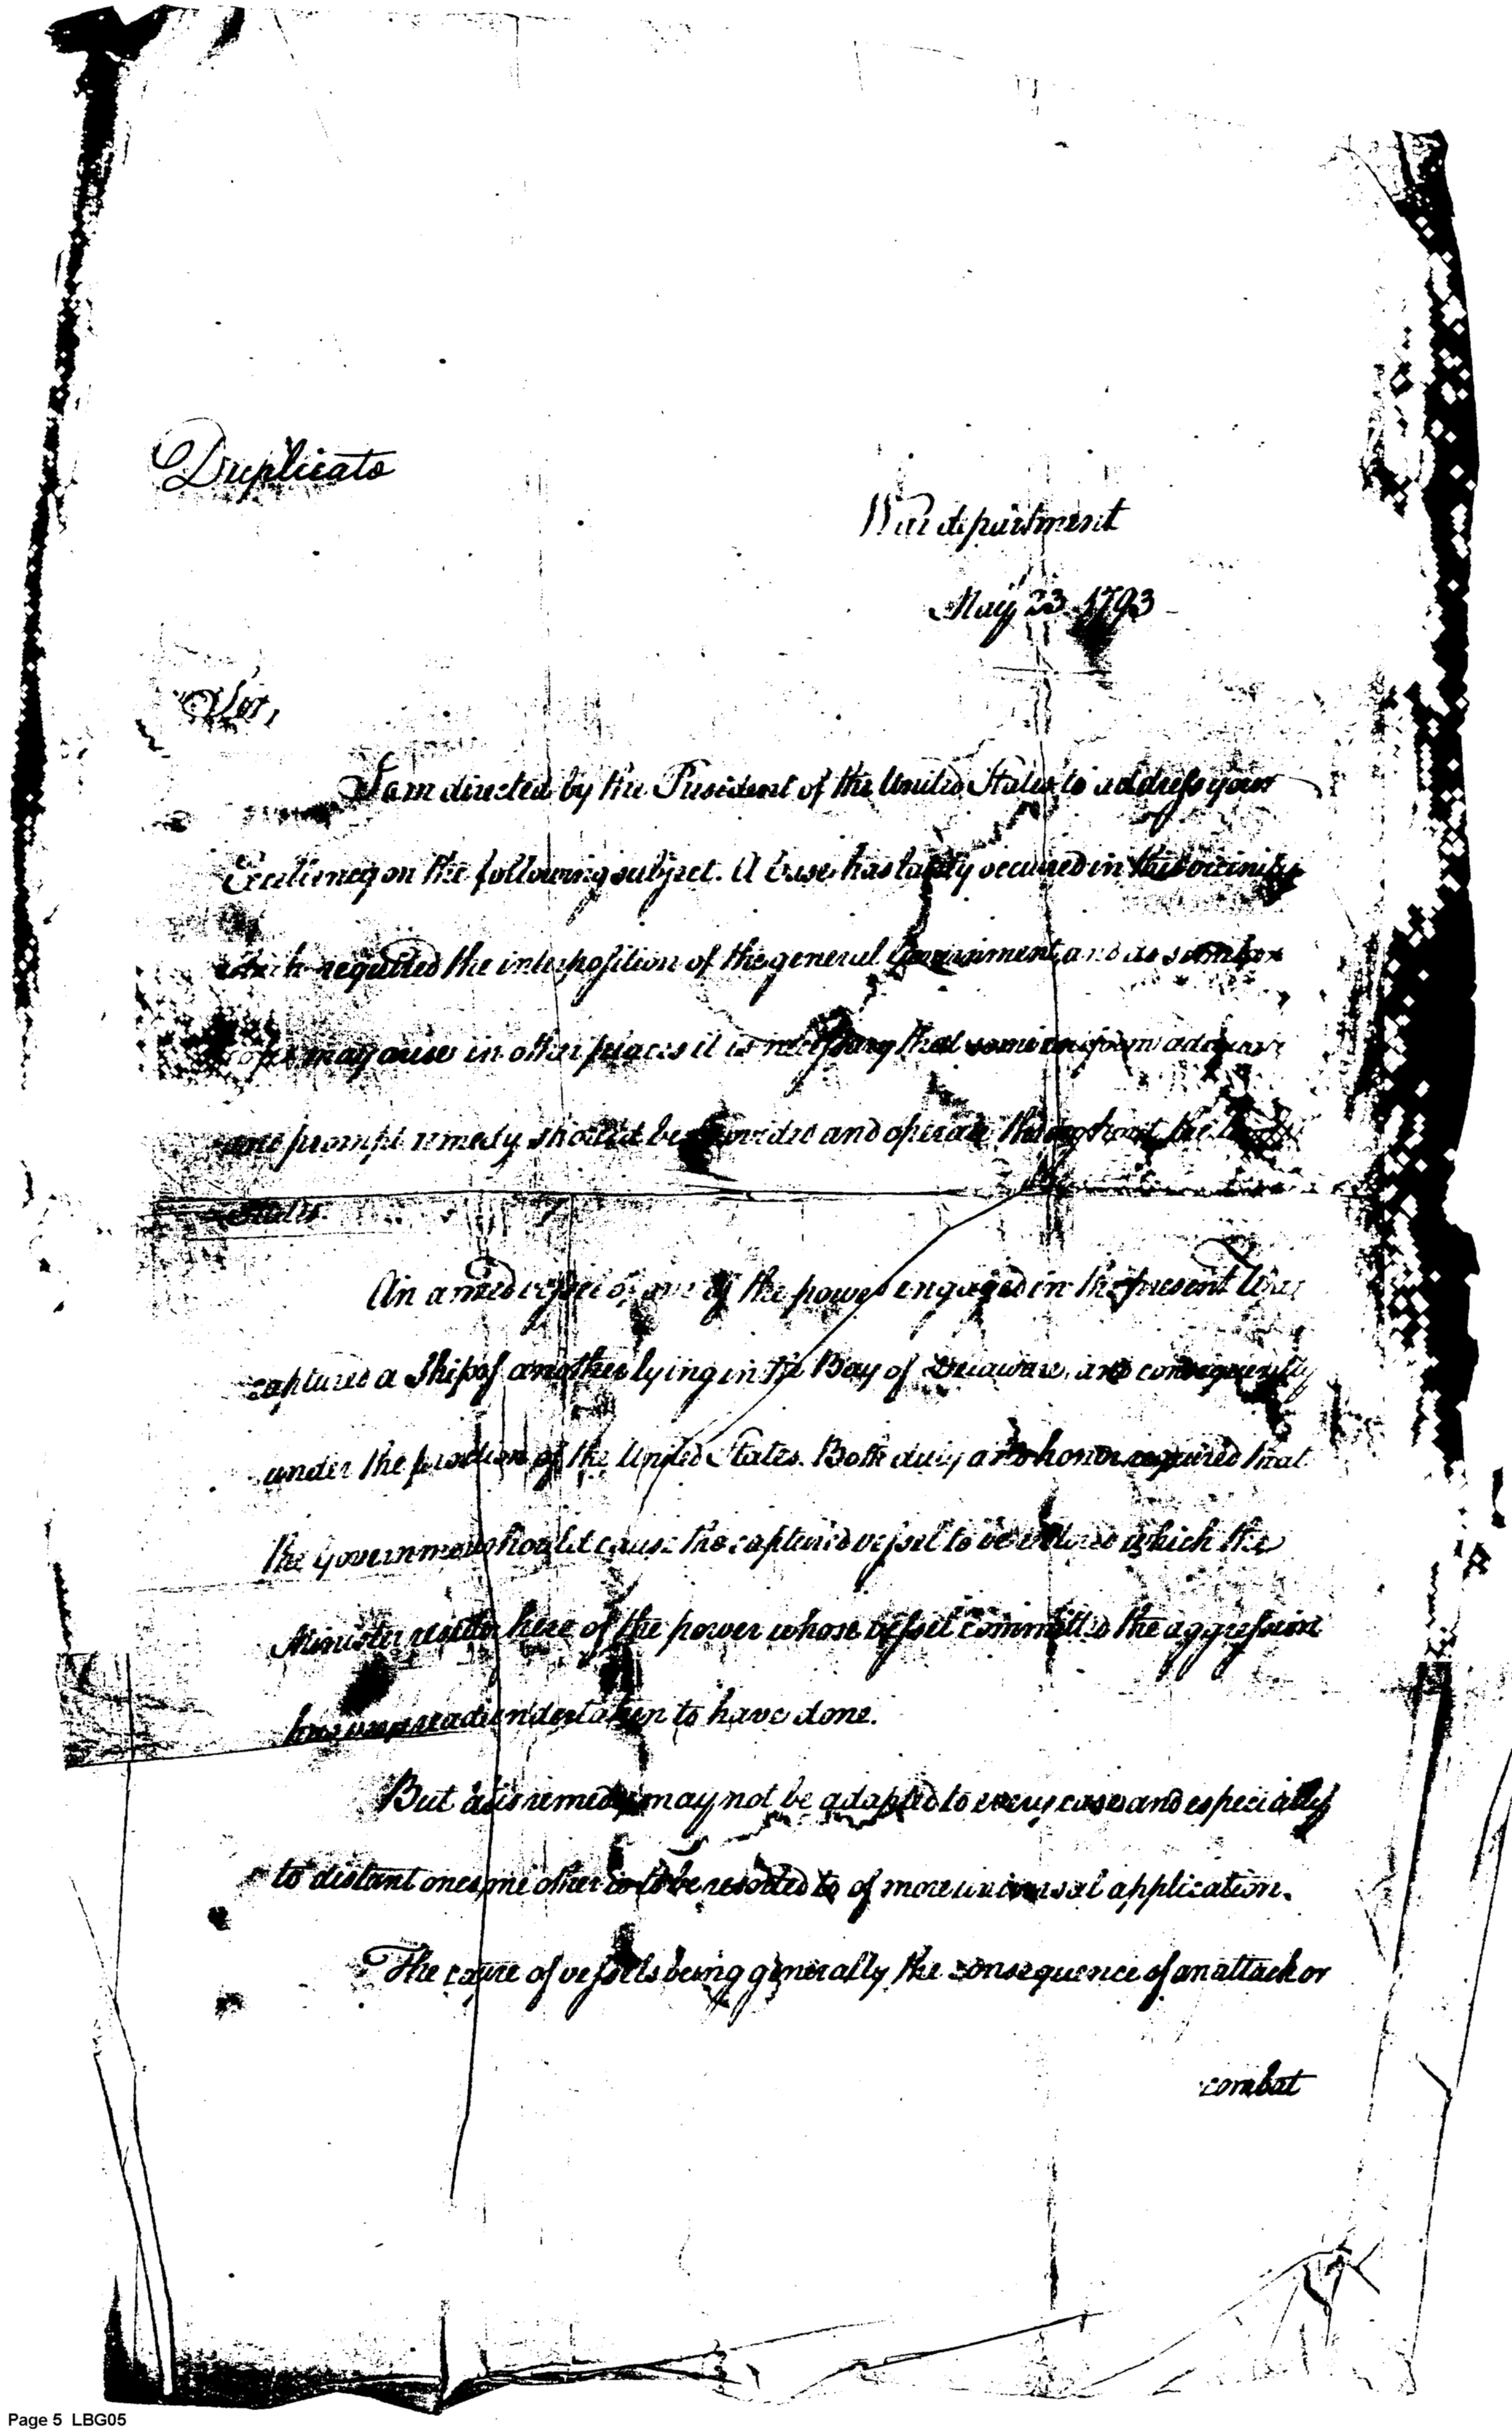 Duplicate
War department
May 23. 1793
Sir,
I am directed by the President of the United States to address your
Excellency on the following subject. A Case has lately occurred in this vicinity
which required the interposition of the general Government, and as similar
may arise in other places it is necessary that some uniform adequate
and prompt remedy should be provided and operate throughout the United
States.
An armed vessel of one of the powers engaged in the present War
captured a Ship of another lying in the Bay of Delaware, and consequently
under the protection of the United States. Both duty and honor required that
the Government should cause the captured vessel to be restored which the
Minister resident here of the power whose vessel committed the aggression
undertaken to have done.
But this remedy may not be adapted to every case and especially
to distant ones some other is to be resorted to of more universal application.
The capture of vessels being generally the consequence of an attack or
combat
Page 5 LBG05